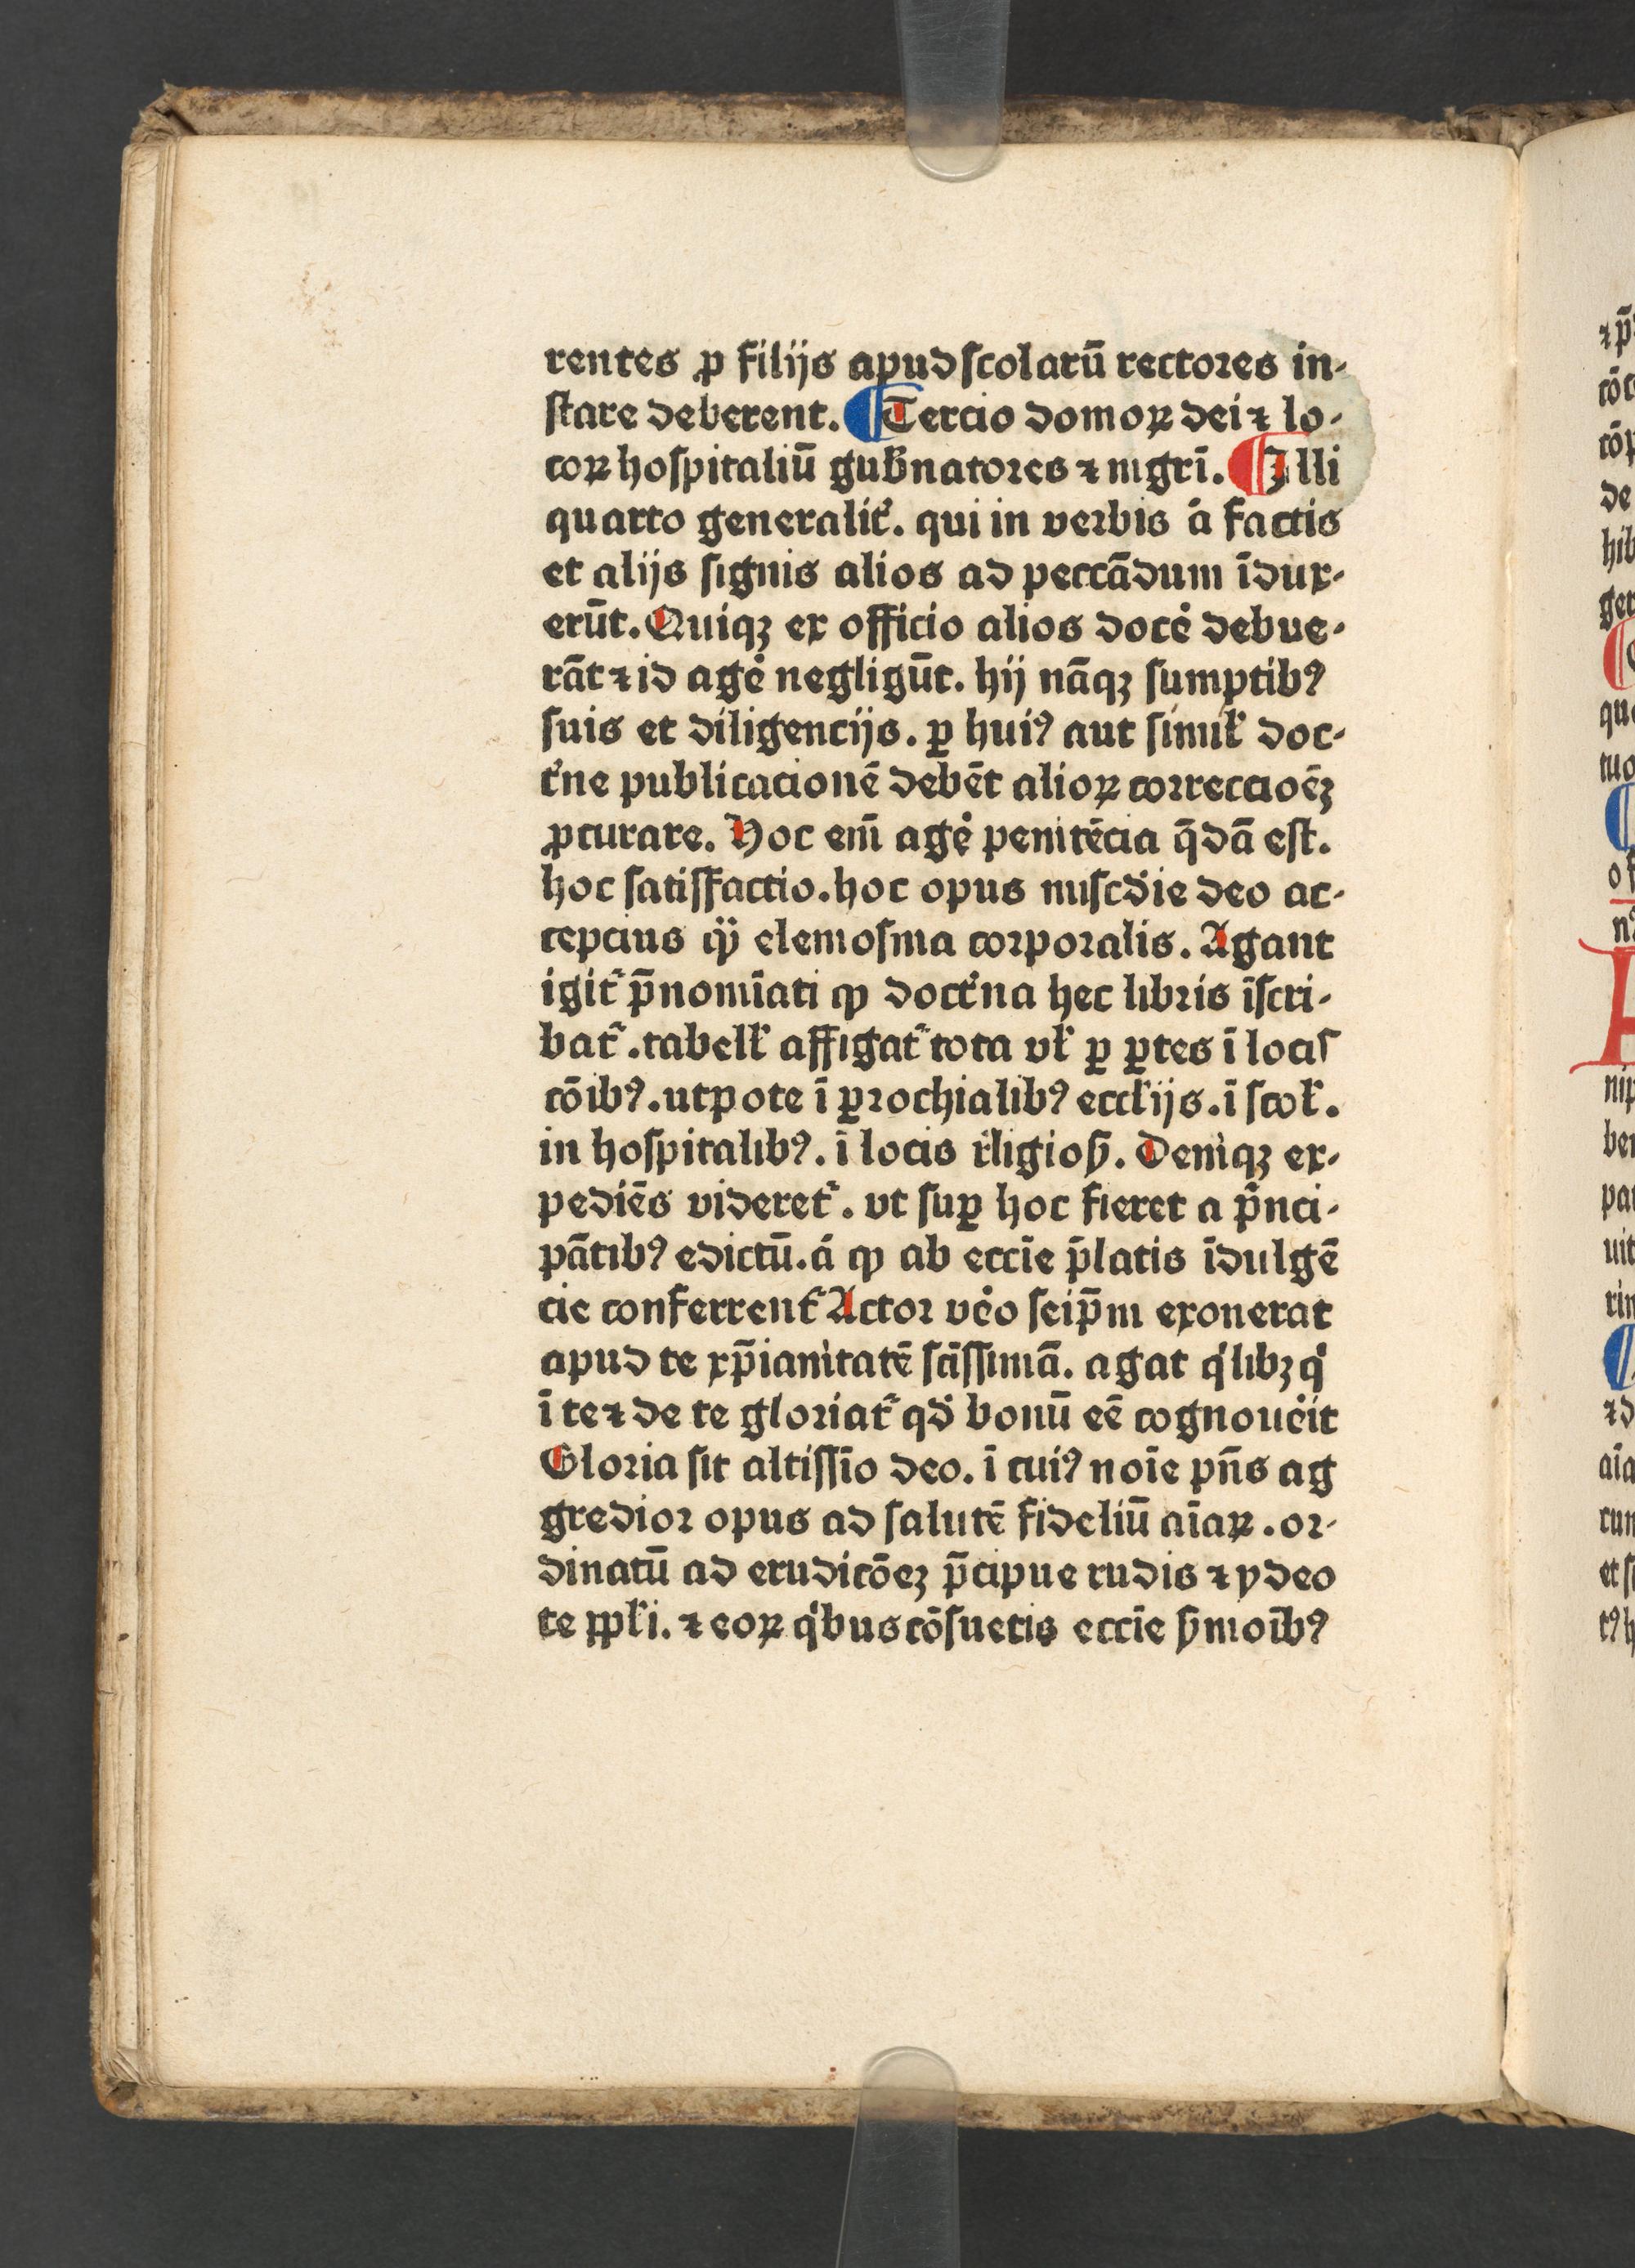 rentes ꝓ filijs apud ſcolarū rectores in-
ſtare deberent. ¶ Tercio domoꝝ dei ⁊ lo-
coꝝ hoſpitaliū gub̄natores ⁊ mgrī. ¶ Illi
quarto generalit̉. qui in verbis a̍ factis
et alijs ſignis alios ad peccādum īdux-
erūt. Quiqꝫ ex officio alios docē̉ debue-
rāt ⁊ id agē̉ negligūt. hij nāqꝫ ſumptibꝰ
ſuis et diligencijs. ꝑ huiꝰ aut ſimiꝉ doc-
t̍ne publicacionē debēt alioꝝ correccioēꝫ
ꝓcurare. Hoc em̄ agē̉ penitēcia q̄dā eſt.
hoc ſatiſfactio. hoc opus miſcd̓ie deo ac-
cepcius qͣ̈ elemoſina corporalis. Agant
igit᷑ p̄nomīati ꝙ doct̍na hec libris īſcri-
bat᷑. tabelꝉ affigat᷑ tota vꝉ ꝑ ꝑtes ī locis
cōibꝰ. utpote ī ꝑrochialibꝰ eccꝉijs. ī ſcoꝉ.
in hoſpitalibꝰ. ī locis r̉ligioſꝭ. Deniqꝫ ex-
pediēs videret᷑. vt ſuꝑ hoc fieret a p̄nci-
pātibꝰ edictū. a̍ ꝙ ab eccīe p̄latis īdulgē
cie conferrent᷑ Actor vẻo ſeip̄m exonerat
apud te xp̄ianitatē ſc̄iſſimā. agat q̍libꝫ q̍
ī te ⁊ de te gloriat᷑ qd̓ bonū eē cognouẻit
Gloria ſit altiſſīo deo. ī cuiꝰ noīe pn̄s ag
gredior opus ad ſalutē fideliū aīaꝝ. or-
dinatū ad erudicōeꝫ p̄cipue rudis ⁊ ydeo
te ppꝉi. ⁊ eoꝝ q̍bus cōſuetis eccīe ẜmoībꝰ